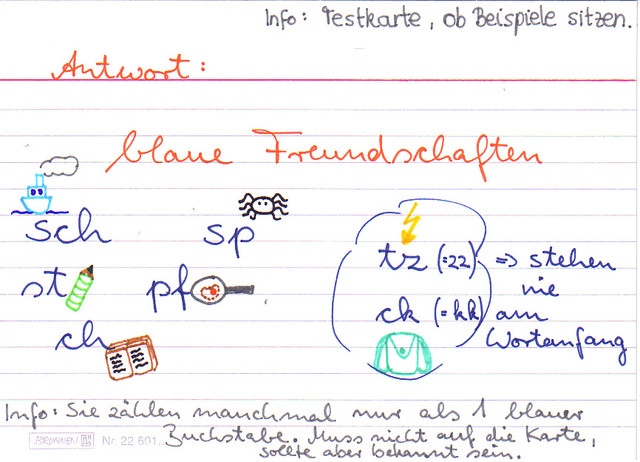 Info: Testkarte, ob Beispiele sitzen.
Antwort:
blaue Freundschaften
sch sp
st pf
ch
tz (=zz) => stehen
nie
ck (=kk) am
Wortanfang
Info: Sie zählen manchmal nur als 1 blauer
Buchstabe. Muss nicht auf die Karte,
sollte aber bekannt sein.
BRUNNEN Nr. 22 601